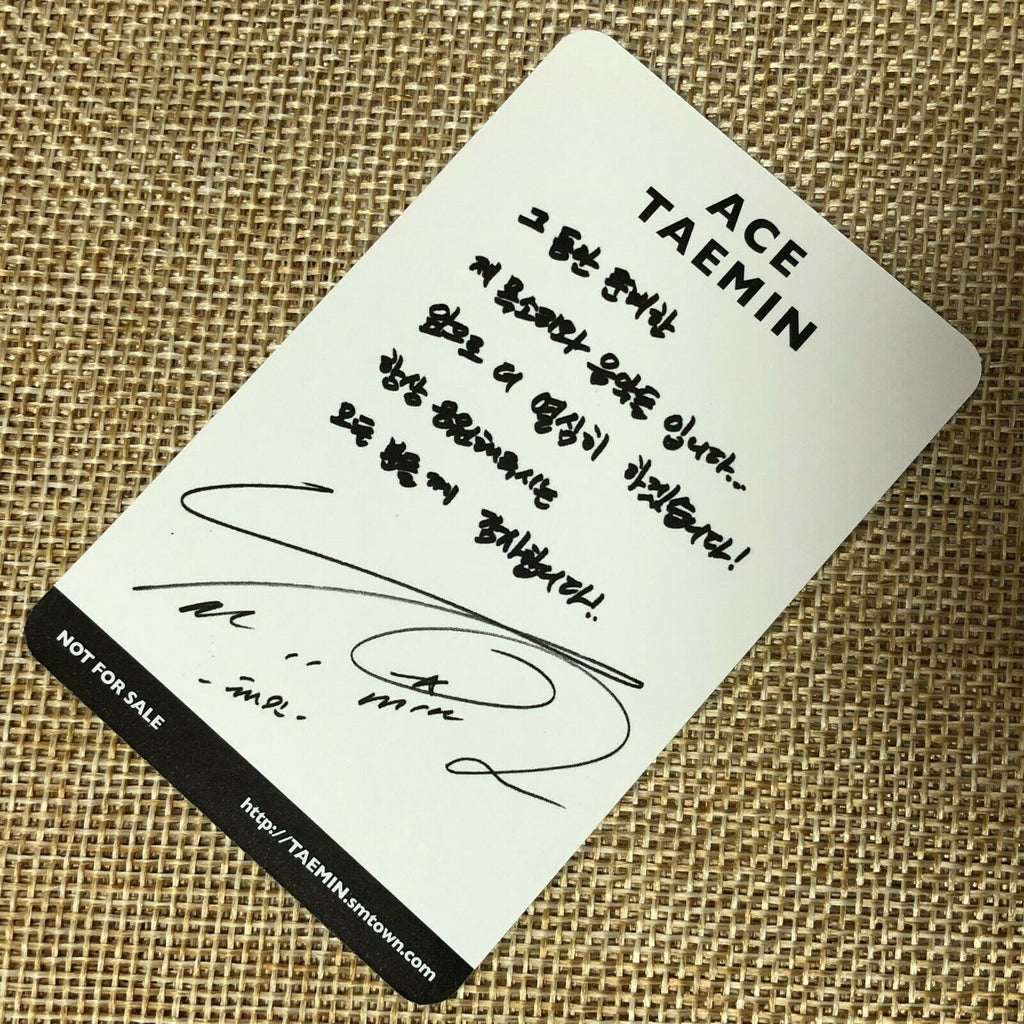 ACE
TAEMIN
그 동안 준비한
제 목소리와 음악들 입니다..
앞으로 더 열심히 하겠습니다!
항상 응원해주시는
모든 분들께 감사합니다!
태민
NOT FOR SALE
http://TAEMIN.smtown.com